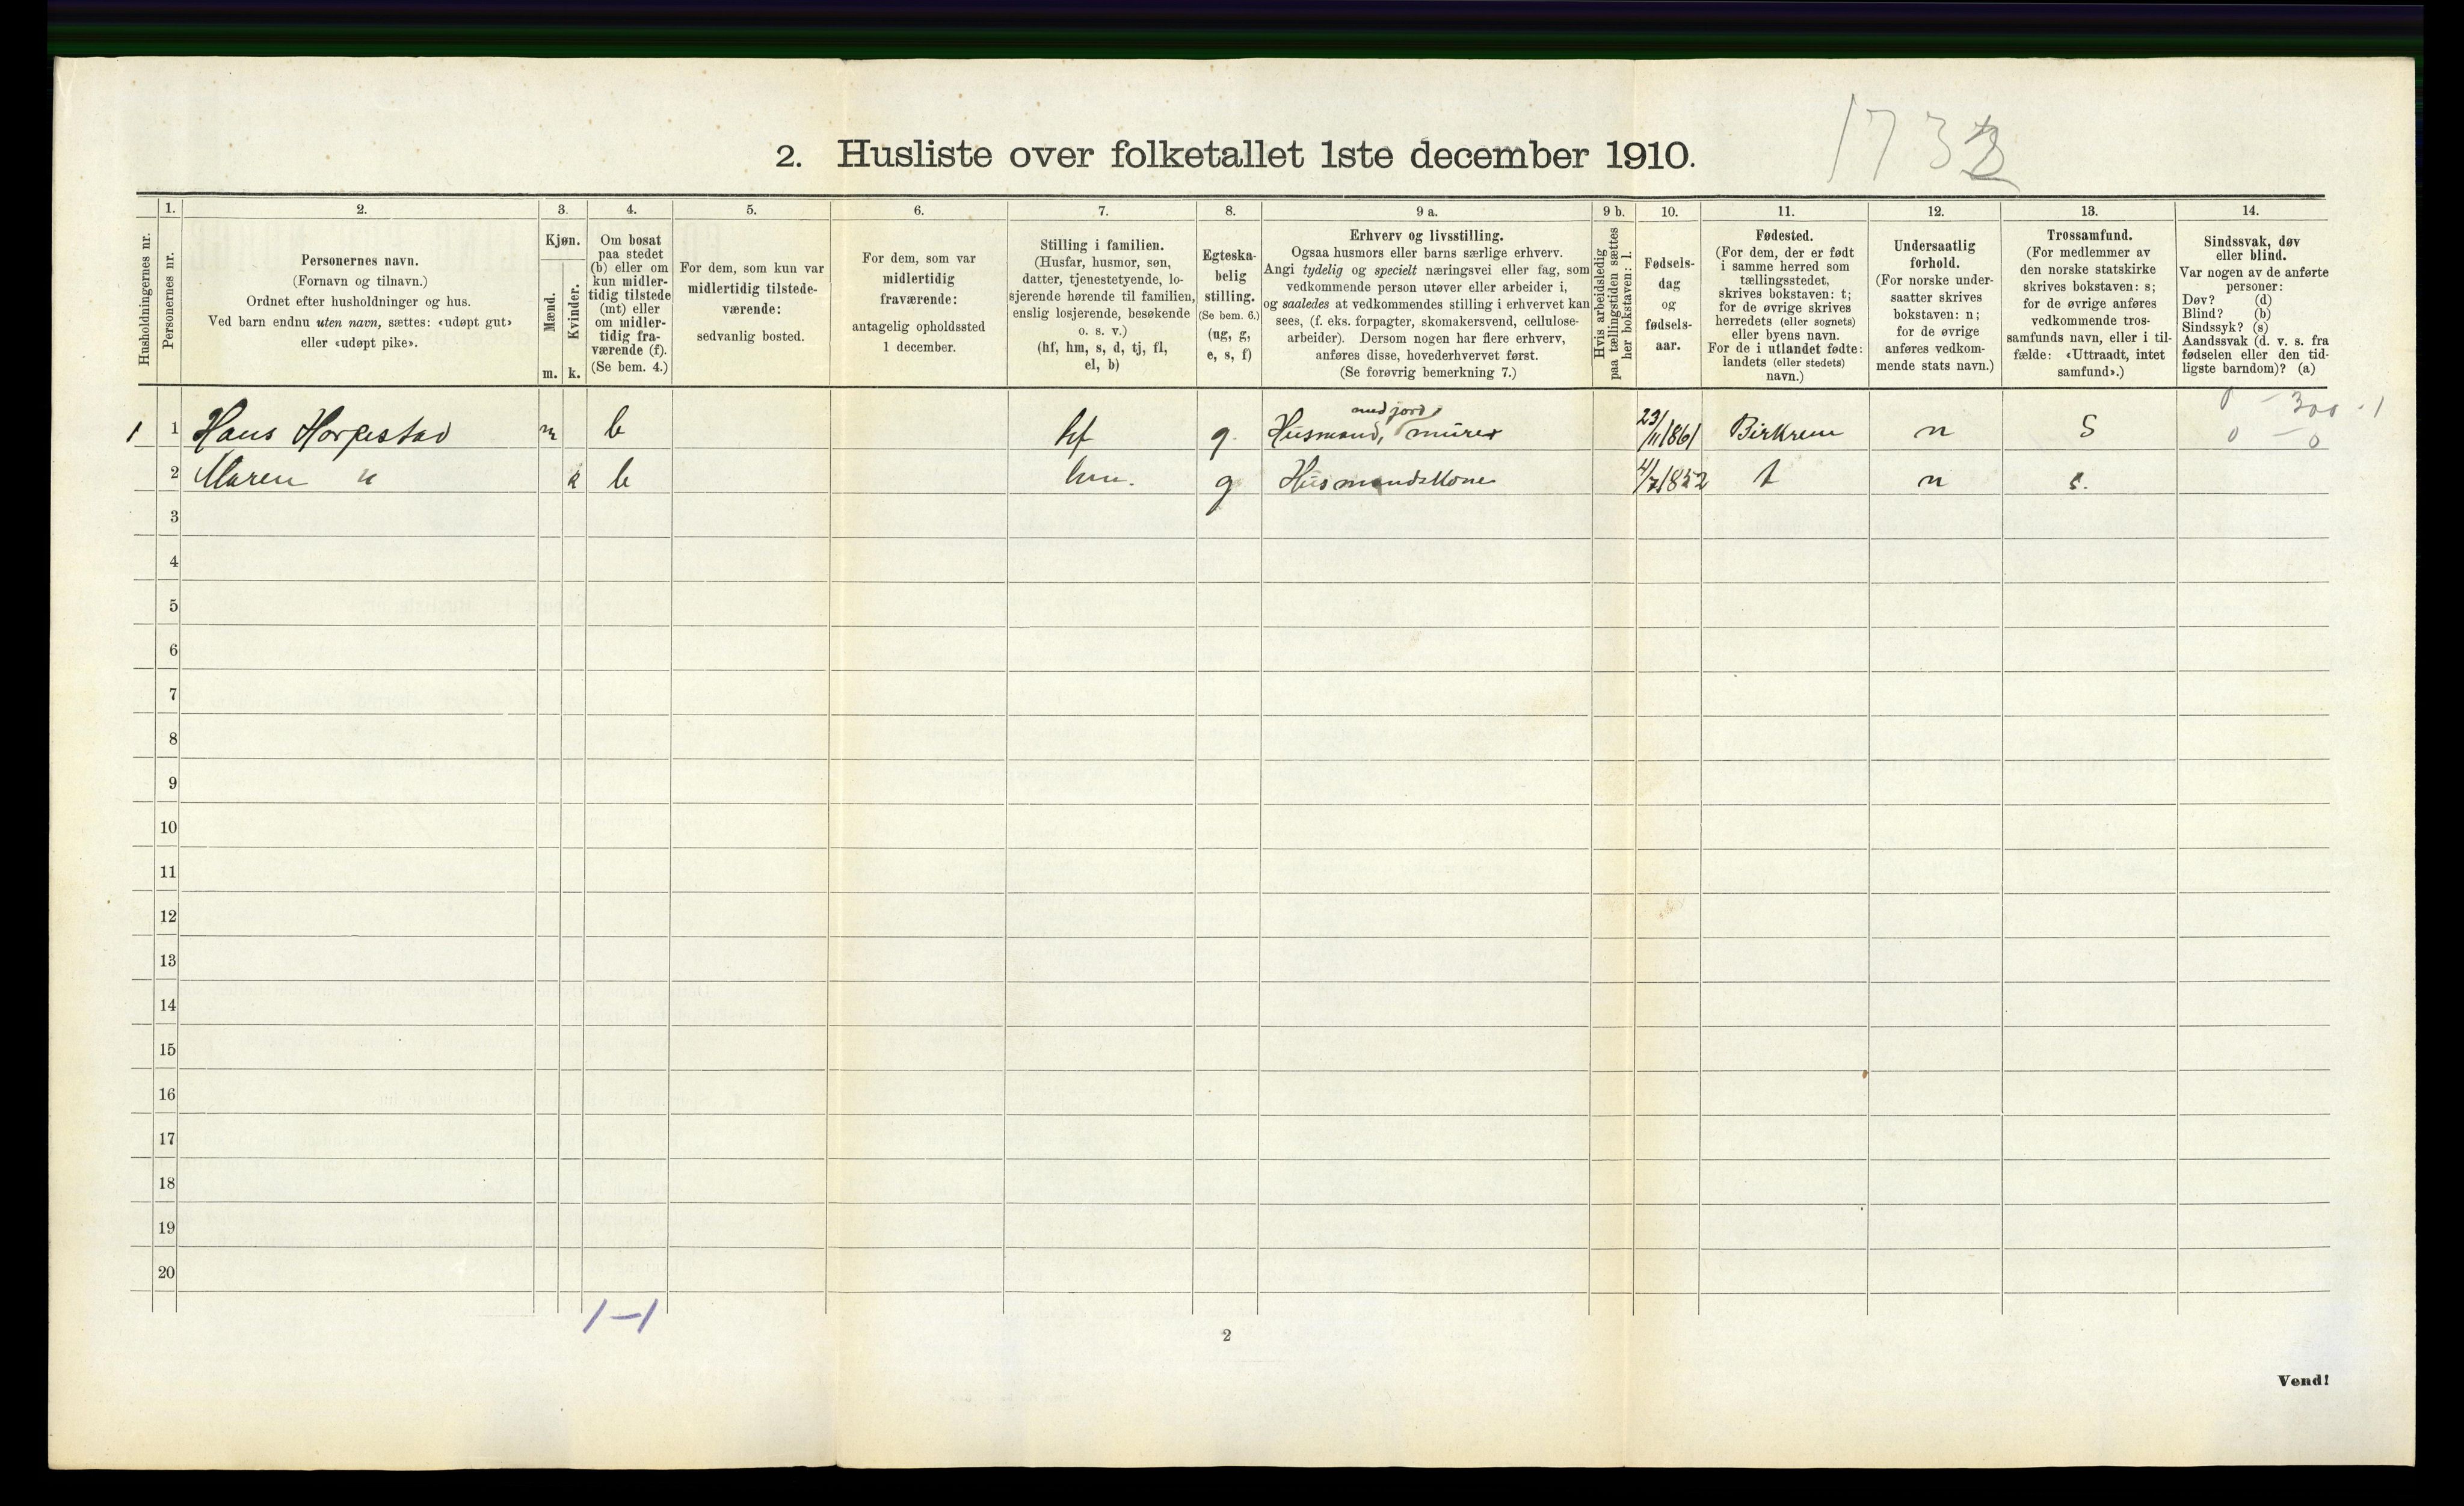 1732
2. Husliste over folketallet 1ste december 1910.
Husholdningernes nr.
1.
Personernes nr.
2.
Personernes navn.
(Fornavn og tilnavn.)
Ordnet efter husholdninger og hus.
Ved barn endnu uten navn, sættes: «udøpt gut»
eller «udøpt pike».
3.
Kjøn.
Mænd.
Kvinder.
m. k.
4.
Om bosat
paa stedet
(b) eller om
kun midler-
tidig tilstede
(mt) eller
om midler-
tidig fra-
værende (f).
(Se bem. 4.)
5.
For dem, som kun var
midlertidig tilstede-
værende:
sedvanlig bosted.
6.
For dem, som var
midlertidig
fraværende:
antagelig opholdssted
1 december.
7.
Stilling i familien.
(Husfar, husmor, søn,
datter, tjenestetyende, lo-
sjerende hørende til familien,
enslig losjerende, besøkende
o. s. v.)
(hf, hm, s, d, tj, fl,
el, b)
8.
Egteska-
belig
stilling.
(Se bem. 6.)
(ug, g,
e, s, f)
9 a.
Erhverv og livsstilling.
Ogsaa husmors eller barns særlige erhverv.
Angi tydelig og specielt næringsvei eller fag, som
vedkommende person utøver eller arbeider i,
og saaledes at vedkommendes stilling i erhvervet kan
sees, (f. eks. forpagter, skomakersvend, cellulose-
arbeider). Dersom nogen har flere erhverv,
anføres disse, hovederhvervet først.
(Se forøvrig bemerkning 7.)
9 b.
Hvis arbeidsledig
paa tællingstiden sættes
her bokstaven: l.
10.
Fødsels-
dag
og
fødsels-
aar.
11.
Fødested.
(For dem, der er født
i samme herred som
tællingsstedet,
skrives bokstaven: t;
for de øvrige skrives
herredets (eller sognets)
eller byens navn.
For de i utlandet fødte:
landets (eller stedets)
navn.)
12.
Undersaatlig
forhold.
(For norske under-
saatter skrives
bokstaven: n;
for de øvrige
anføres vedkom-
mende stats navn.)
13.
Trossamfund.
(For medlemmer av
den norske statskirke
skrives bokstaven: s;
for de øvrige anføres
vedkommende tros-
samfunds navn, eller i til-
fælde: «Uttraadt, intet
samfund».)
14.
Sindssvak, døv
eller blind.
Var nogen av de anførte
personer:
Døv? (d)
Blind? (b)
Sindssyk? (s)
Aandssvak (d. v. s. fra
fødselen eller den tid-
ligste barndom)? (a)
0 - 300 . 1
1 1 Hans Horpestad m b hf g. Husmand, med jord, murer 23/11 1861 Birkrem n S 0 - 0
2 Maren " k b hm. g Husmandskone 4/7 1852 t n s.
3
4
5
6
7
8
9
10
11
12
13
14
15
16
17
18
19
20
1-1
2
Vend!